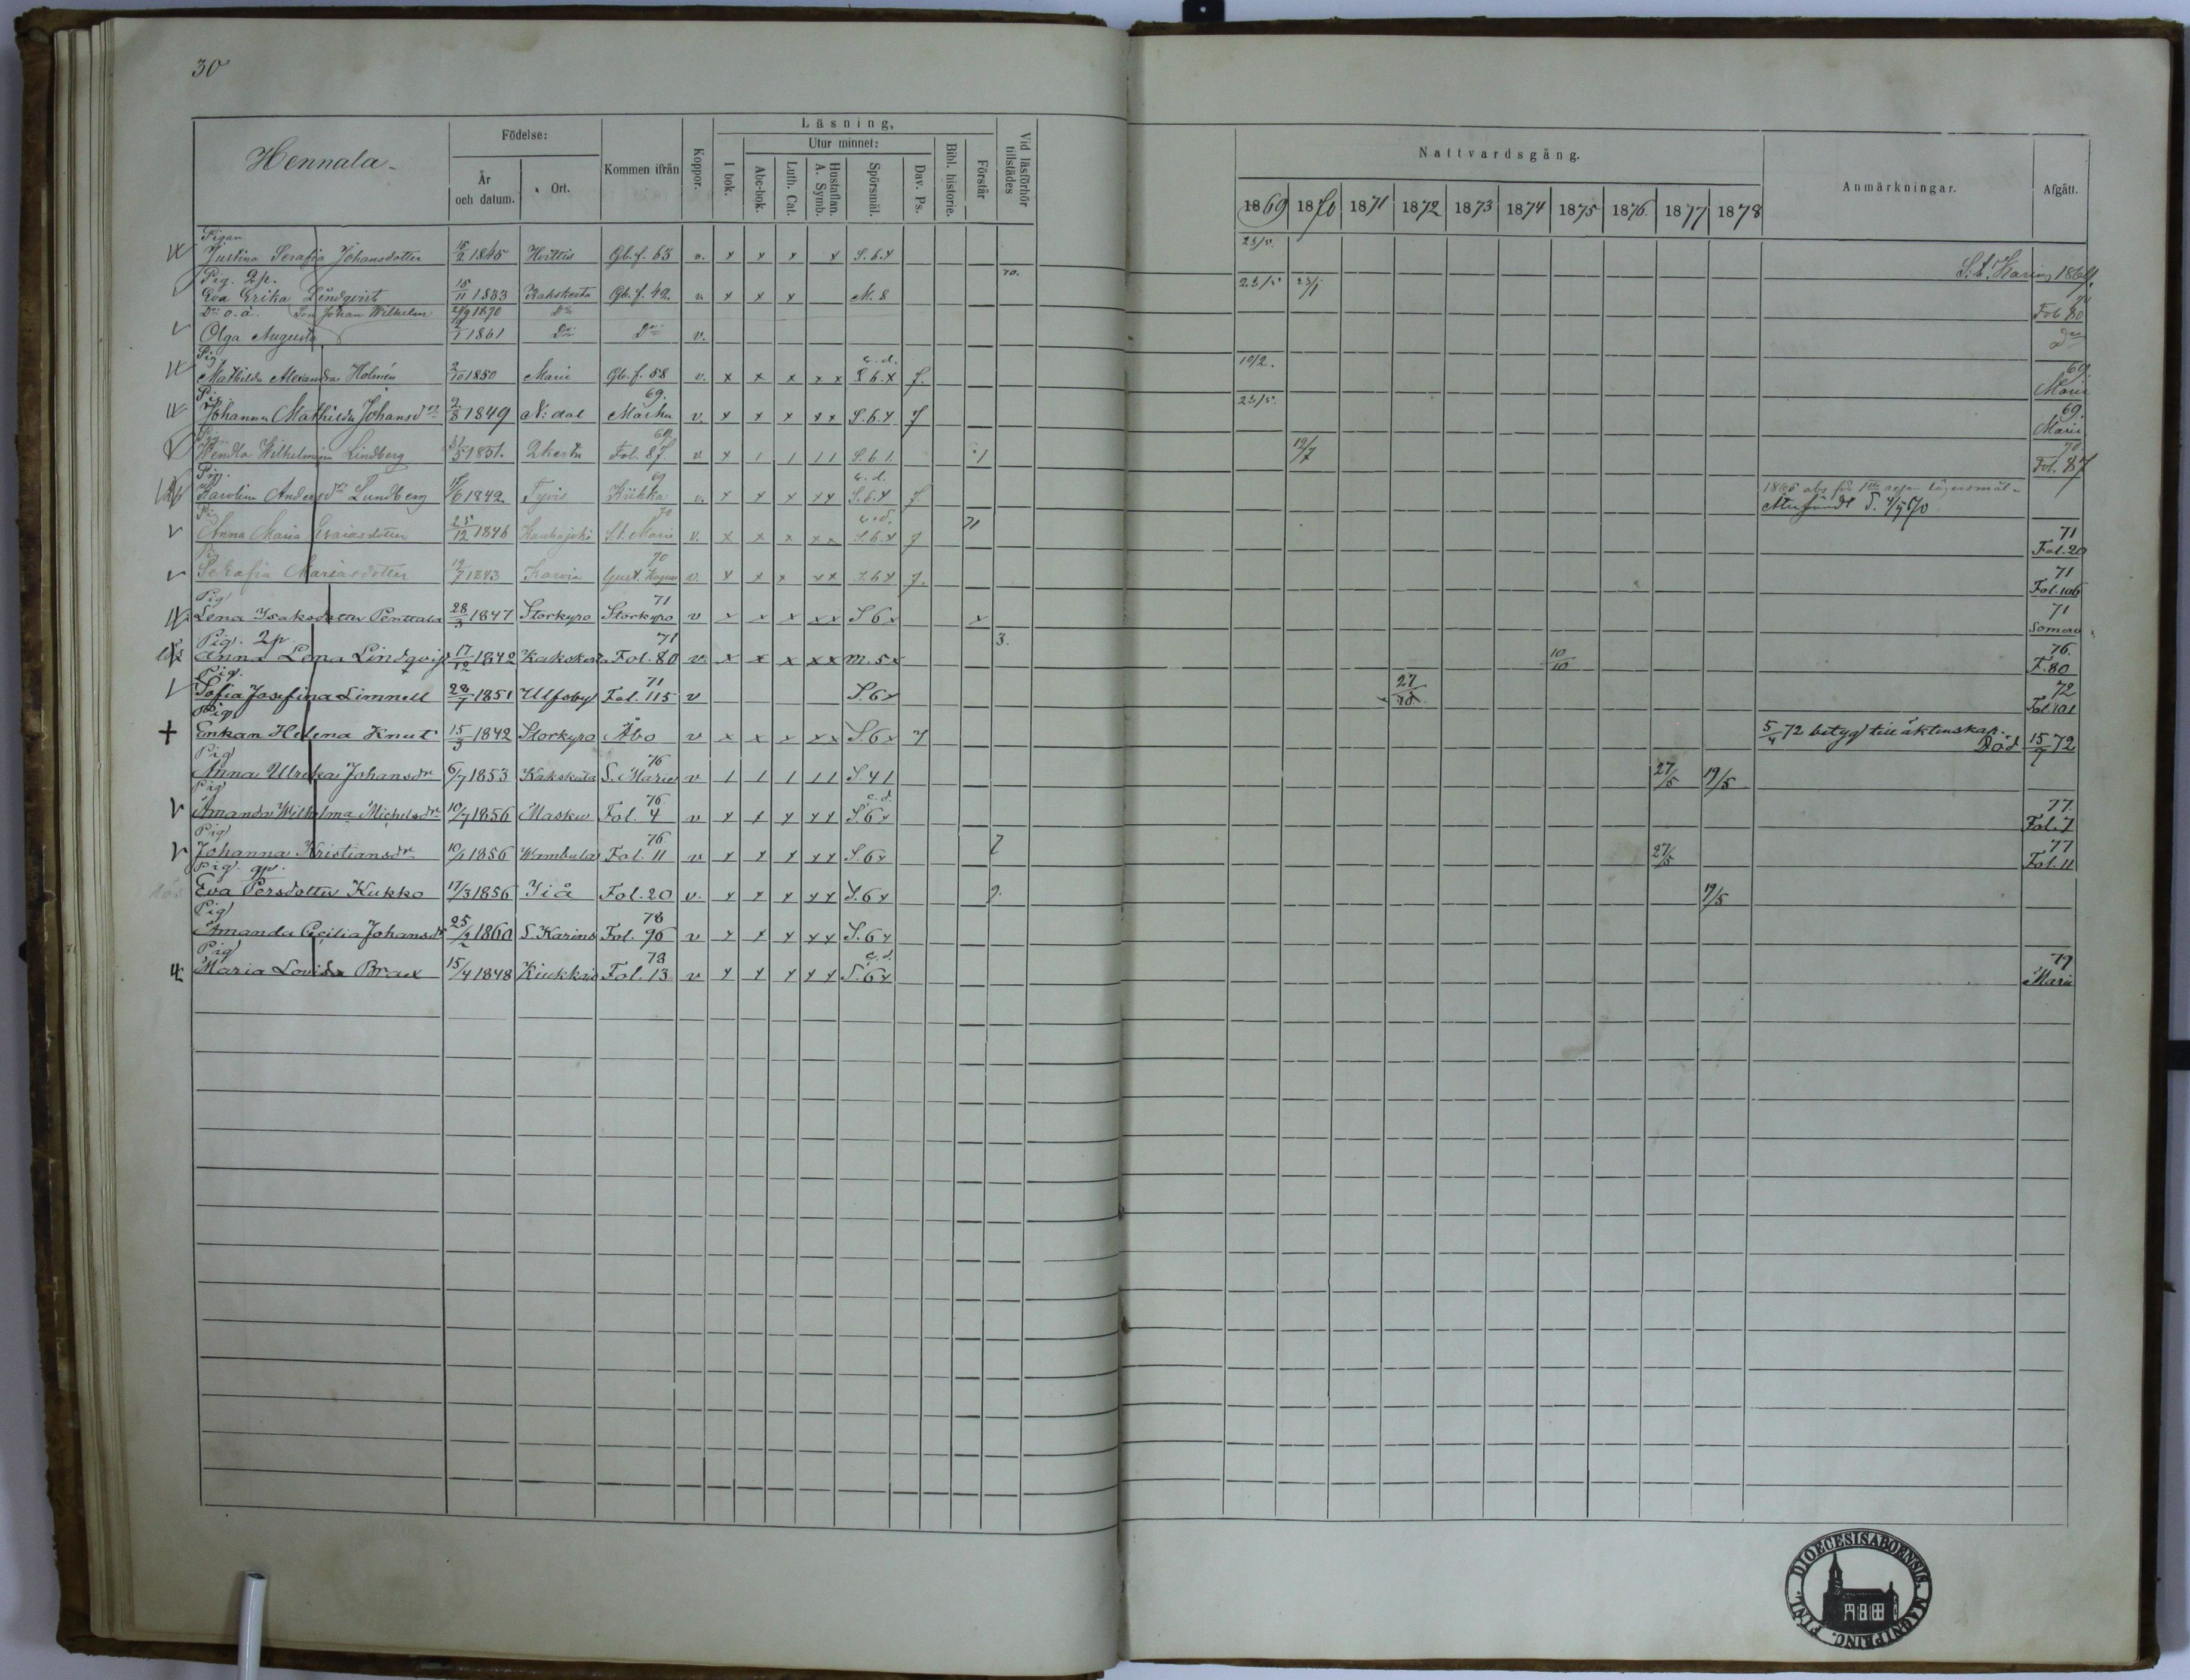 30
Hennala
Födelse:
År och datum.
Ort.
Kommen ifrån
Koppor.
Läsning,
I bok.
Utur minnet:
Abc-bok.
Luth. Cat.
Hustaflan. A. Symb.
Spörsmål.
Dav. Ps.
Bibl. historie.
Förstår
Vid läsförhör tillstädes
Nattvardsgång.
1869 1870 1871 1872 1873 1874 1875 1876 1877 1878
Anmärkningar.
Afgått.
Pigan
Justina Serafia Johansdotter 15/2 1845 Gb. f. 63 v. x x x x S. 6. x 23/5. S:t Karins 1869.
Pig. 2p. 70.
Eva Erika Lindqvist 15/11 1833 Kakskerta Gb. f. 42. v. x x x M. 8 23/5 23/1 70
D:r o. ä. Son Johan Wilhelm 24/9 1870 D:o Fol 80
Olga Augusta 2/1 1861 D:o D:o v. d:o
Pig c. d. 69.
Mathilda Alexandra Holmén 2/10 1850 Marie Gb. f. 58 v. x x x x x S. 6. x 7. 10/2. Marie
Pig 69. 69.
Johanna Mathilda Johansd:r 2/8 1849 N:dal Masku v. x x x x x S. 6. x 7 23/5. Marie
Pig. 69. 70
Wendla Wilhelmina Lindberg 31/5 1851. Fol. 87 v. x 1 1 1 1 S. 6 1. 1 19/7 Fol. 87
Pig. 69 c. d.
Karolina Andersd:r Lundberg 1842. Tyvis Kiikka v. x x x x x S. 6. x 7 1865 abs för
Pig 70 c. d. 71 71
Anna Maria Esaiasdotter 25/12 1846 Kauhajoki S:t Marie v. x x x x x S. 6. x 7 Fol. 20
Pig 70 71
Serafia Mariasdotter 19/7 1843 Karvia Gust. v. x x x x x S. 6 x 7. Fol. 106
Pig 71 71
Lena Isaksdotter Penttala 28/3 1847 Storkyro Storkyro v x x x x x S 6 x x Somero
Pig. 2p. 71 3. 76.
Anna Lena Lindqvist 17/12 1842 Kakskerta Fol. 80 v. x x x x x m. 5 x 10/10 F. 80
Pig. 71 72
Sofia Josefina Limnell 28/7 1851 Ulfsby Fol. 115 v S. 6 x 27/10 Fol. 101
Pig
Enkan Helena Knut 15/3 1842 Storkyro Åbo v x x x x x S. 6 x 7 5/4 72 betyg till äktenskap. Död 15/7 72
Pig 76
Anna Ulrika Johansdr 6/7 1853 Kakskerta S. Marie v 1 1 1 1 1 S. 4 1 27/5 19/5
Pig 76. c. d. 77.
Amanda Wilhelmina Michelsdr 10/7 1856 Masku Fol. 4 v x x x x x S. 6 x Fol. 7
Pig 76 77
Johanna Kristiansdr 10/1 1856 Wambula Fol. 11 v x x x x x S. 6 x 7 27/5 Fol. 11
Pig. 9p.
Eva Persdotter Kukko 17/3 1856 Fol. 20 v. x x x x x S. 6 x 9. 19/5
Pig 78
Amanda Cecilia Johansdr 25/2 1860 S. Karins Fol. 96 v x x x x x S. 6 x
Pig 78 c. d. 79
Maria Lovisa Brax 15/4 1848 Kiukkais Fol. 13 v x x x x x S. 6 x Marie
DIOECESIS ABOENSIS. MAGNI PRINC. FINL.